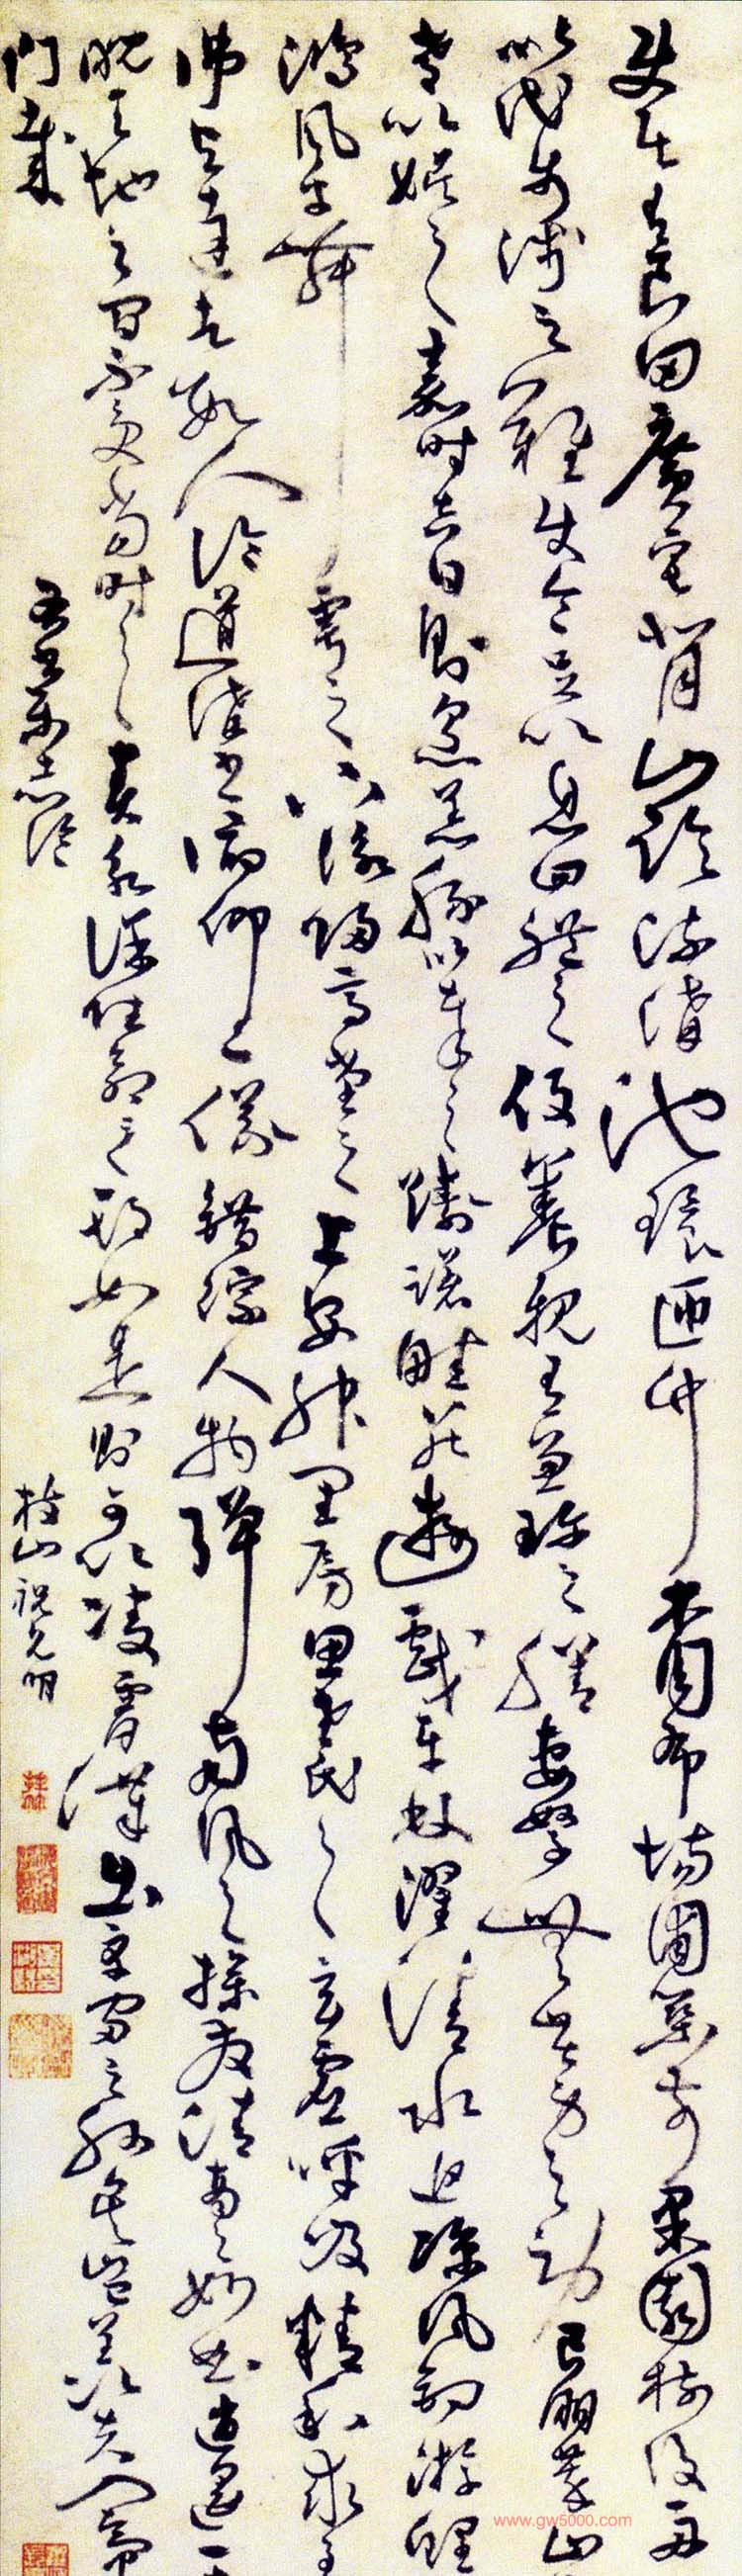 使居有良田廣宅背山臨流溝池環匝竹木周布場圃築前果園樹後舟
以代步涉之難使令足以息四體之役養親有兼珍之膳妻孥無苦身之勞良朋萃止
肴以娛之嘉時吉日則烹羔豚以奉之躕躇畦苑遊戲平林濯清水追涼風釣游鯉
鴻風乎舞雩之下詠歸高堂之上安神閨房思老氏之玄虛呼吸精和求至
彿與達者數人論道講書俯仰二儀錯綜人物彈南風之操發清商之妙曲逍遙一
睨天地之間不受當時之責永保性命之期如是則可以凌霄漢出宇宙之外矣豈羨夫入帝
門哉
右書樂志論
枝山祝允明
www.gw5000.com